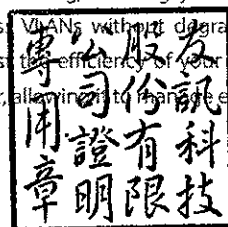 VLANs without
efficiency of your
allowing it to manage
友訊科技
股份有限
公司證明
專用章